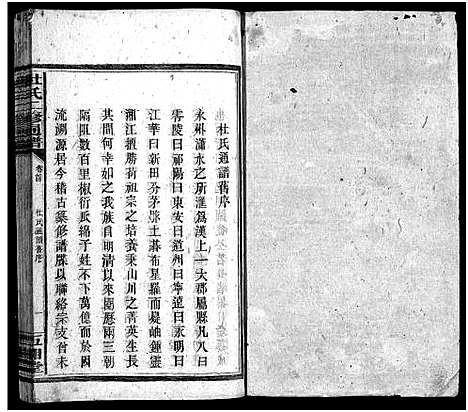 杜氏通譜舊序
永州瀟水之所滙為漢上一大郡屬縣凡八曰
零陵曰祁陽曰東安曰道州曰寧遠曰永明曰
江華曰新田分茅胙土碁布星羅而巉岫鍾靈
湘江獻勝荷祖宗之培養秉山川之菁英生長
其間何幸如之我族自明清以來閱歷兩三朝
隔阻數百里椒衍瓜綿子姓不下萬億而於窮
流溯源居今稽古纂修譜牒以聯絡宗支者未
杜氏二修通譜
卷首
杜氏通譜舊序
一
五桐堂